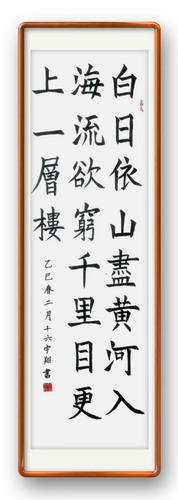 白日依山盡黄河入
海流欲窮千里目更
上一層樓
乙巳春二月十六宇翔書